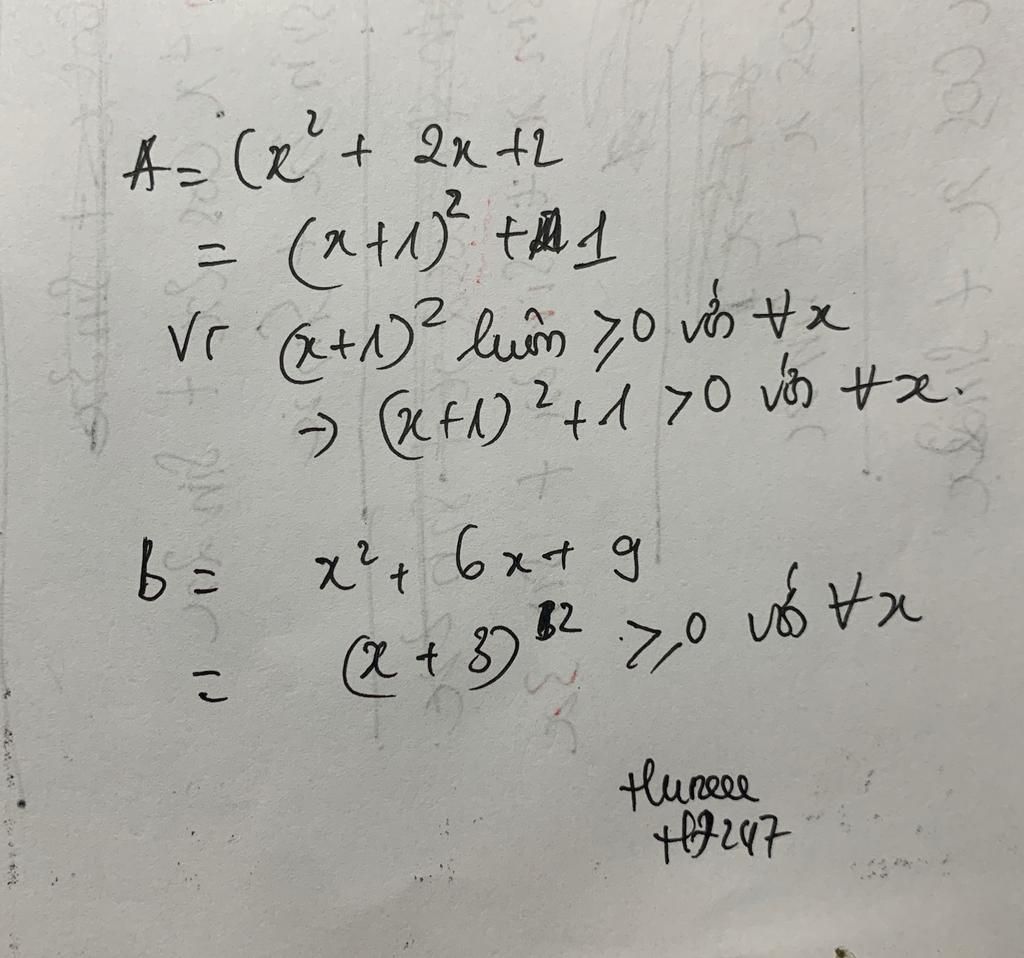 A = (x² + 2x + 2
= (x+1)² + 1
Vì (x+1)² luôn ≥ 0 với ∀x
→ (x+1)² + 1 > 0 với ∀x.
b = x² + 6x + 9
= (x + 3)² ≥ 0 với ∀x
247